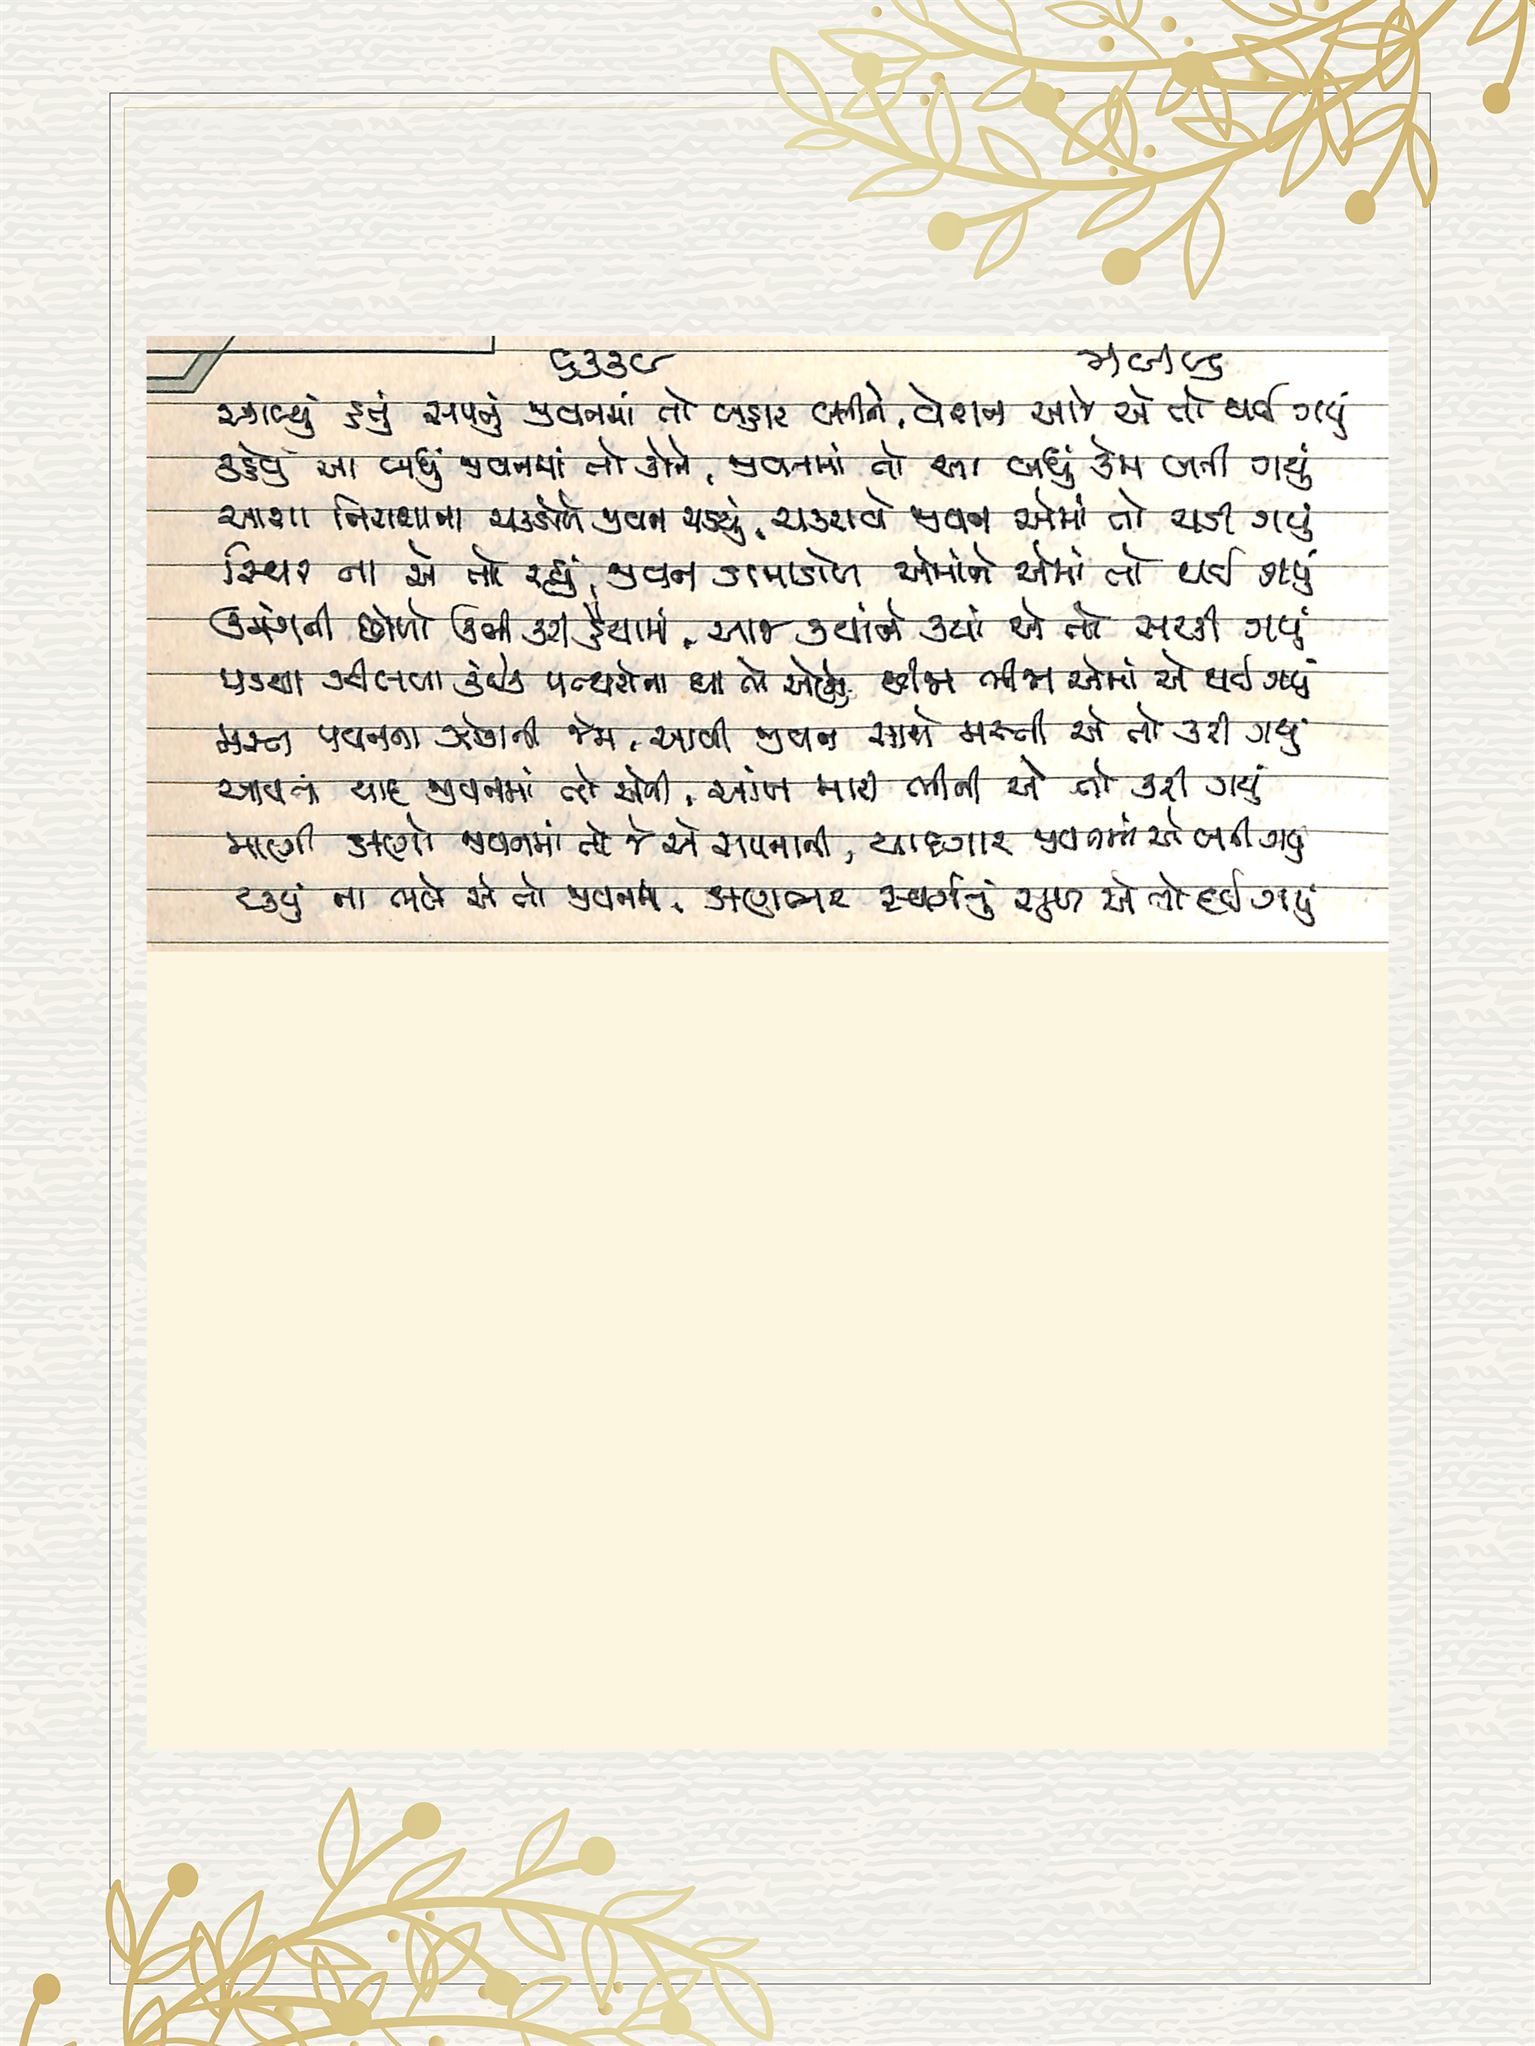 ૬૩૩૯
આવ્યું હતું સપનું જીવનમાં તો બહાર બનીને, વેરાન આજે એ તો થઈ ગયું
કહેવું આ બધું જીવનમાં તો કોને, જીવનમાં તો આ બધું કેમ બની ગયું
આશા નિરાશાના ચકડોળે જીવન ચડયું, ચકરાવે જીવન એમાં તો ચડી ગયું
સ્થિર ના એ તો રહ્યું, જીવન ડામાડોળ એમાંને એમાં તો થઈ ગયું
ઉમંગની છોળો ઊભી કરી હૈયામાં, આજ ક્યાંને ક્યાં એ તો સરકી ગયું
પડયા ઝીલવા કંઈક પથ્થરોના ઘા તો એણે, છીન્ન ભીન્ન એમાં એ થઈ ગયું
મસ્ત પવનના ઝોકાની જેમ, આવી જીવન સાથે મસ્તી એ તો કરી ગયું
આવતાં યાદ જીવનમાં તો એની, આંખ મારી ભીની એ તો કરી ગયું
માણી ક્ષણો જીવનમાં તો જે એ સપનાની, યાદગાર જીવનમાં એ બની ગયું
ટક્યું ના ભલે એ તો જીવનમાં, ક્ષણભર સ્વર્ગનું સુખ એ તો દઈ ગયું